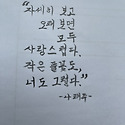 "자세히 보고
오래 보면
모두
사랑스럽다.
작은 들꽃도,
너도 그렇다."
-나태주-